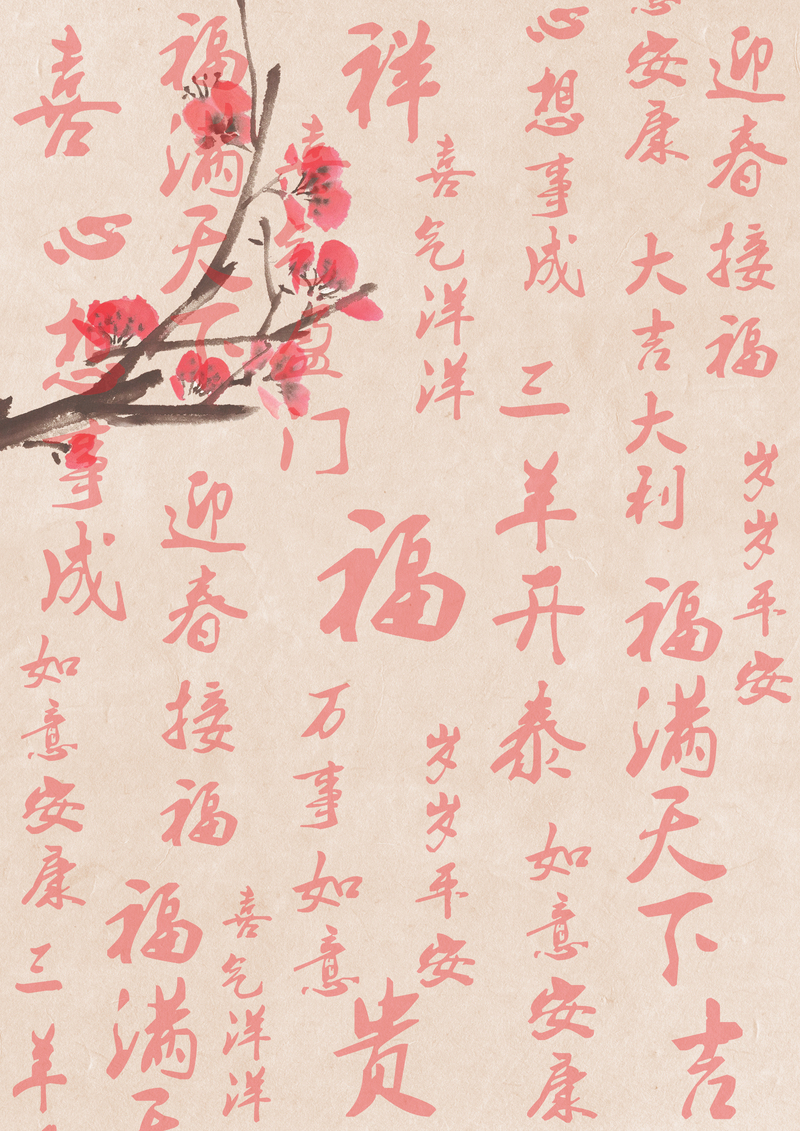 迎春接福
岁岁平安
安康
大吉大利
福满天下
吉
心想事成
三羊开泰
如意安康
喜气洋洋
岁岁平安
祥
福
贵
喜气盈门
万事如意
喜气洋洋
福满天下
迎春接福
福满
喜
心想事成
如意安康
三羊